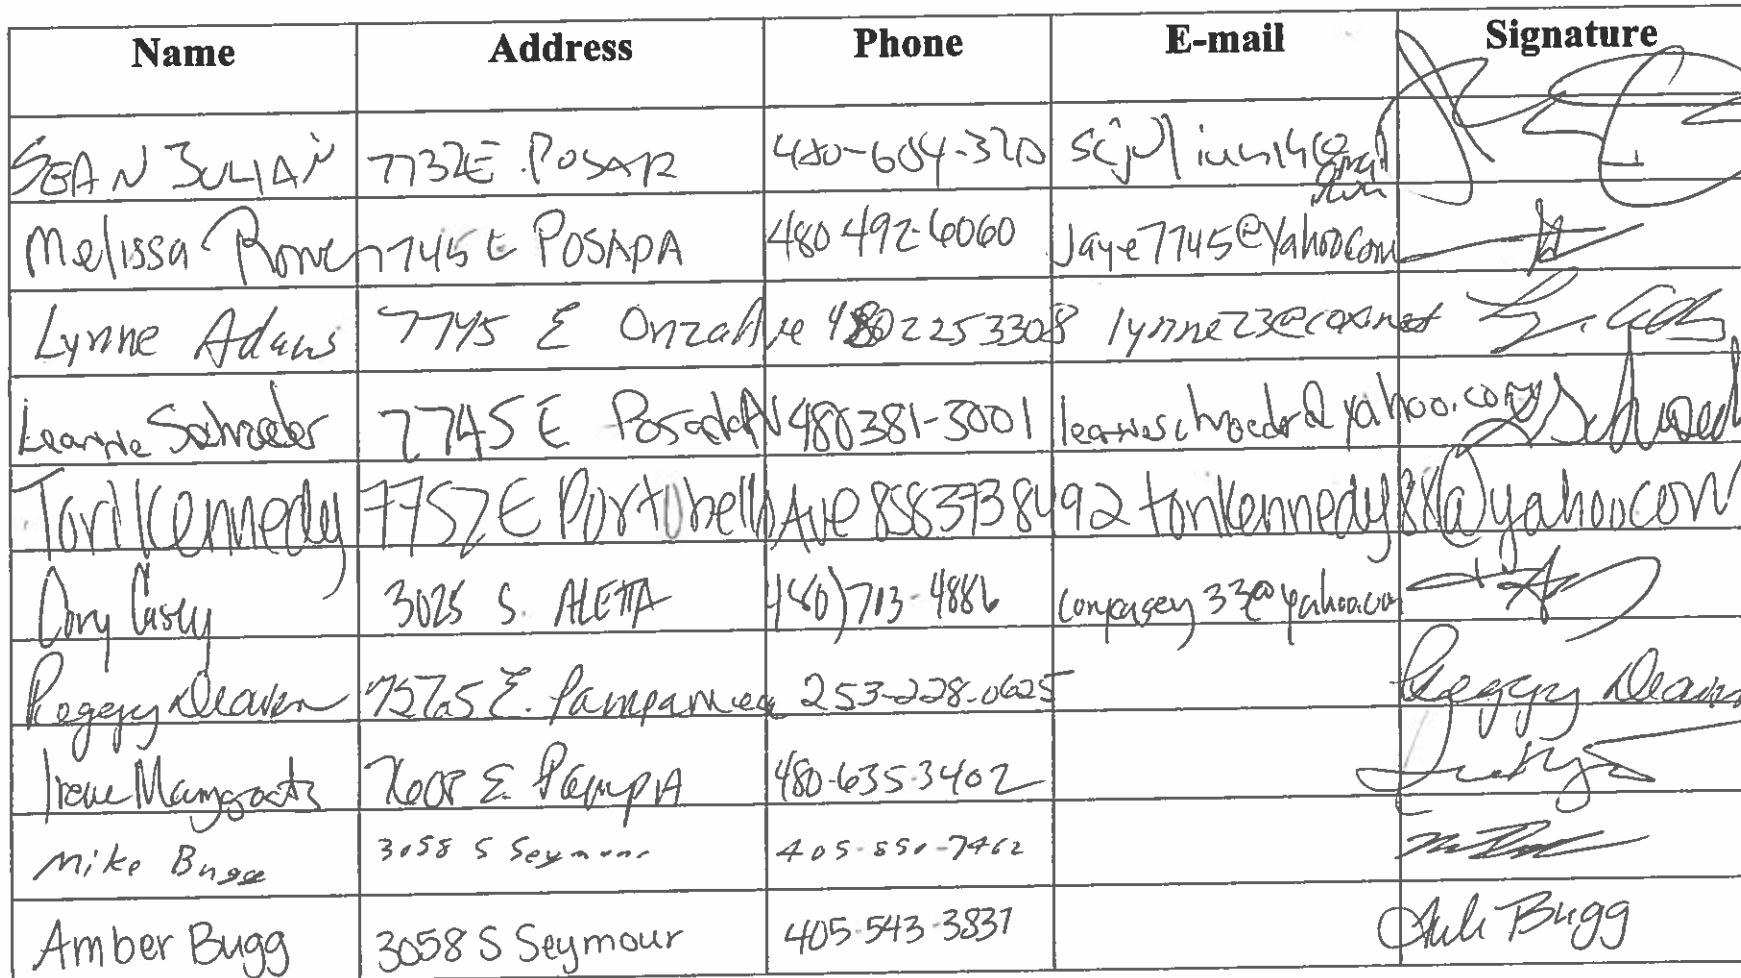 Name Address Phone E-mail Signature
SEAN JULIAN 7732 E. POSADA 480-604-
Melissa 7745 E POSADA 480 492-6060 Jaye7745@yahoo.com
Lynne Adams 7745 E Onza Ave 480 225 3308 lynne23@cox.net
Leanne Schroeder 7745 E Posada Av 480 381-3001 leanneschroeder@yahoo.com
Tori Kennedy 7752 E Portobello Ave 8583738492 torikennedy88@yahoo.com
Cory Casey 3025 S. ALETTA (480) 713-4886 corycasey33@yahoo.com
Peggy E. 253-228-0625 Peggy
Irene 7608 E. PAMPA 480-635-3402
Mike Bugg 3058 S Seymour 405-550-7462
Amber Bugg 3058 S Seymour 405-543-3837 Bugg